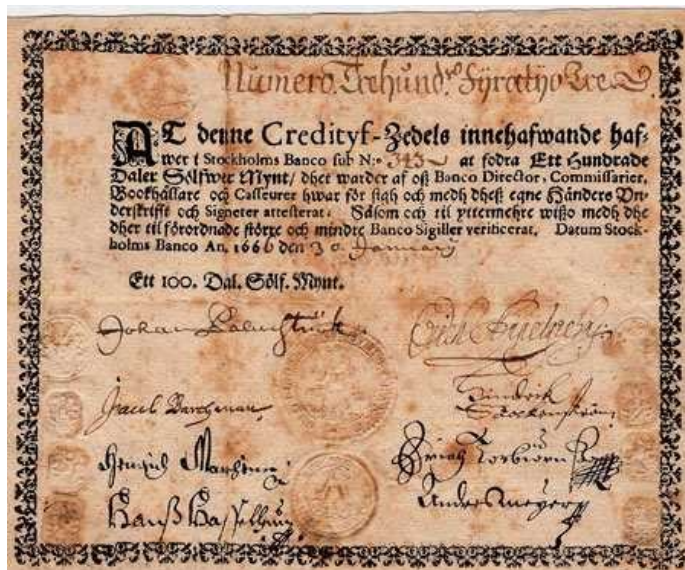 Numero Trehund.ro Fyratyo Tre
AT denne Credityf-Zedels innehafwande haf-
wer i Stockholms Banco sub N:o 343 at fodra Ett Hundrade
Daler Sölfwer Mynt/ dhet warder af oß Banco Director, Commissarier,
Bookhållare och Casseurer hwar för sigh och medh dheß egne Händers Vn-
derskrifft och Signeter attesterat. Såsom och til yttermehre wißo medh dhe
dher til förordnade större och mindre Banco Sigiller verificerat. Datum Stock-
holms Banco An. 1666 den 30 January
Ett 100. Dal. Sölf. Mynt.
Johan Palmstruk
Jacob Barchman
Hindrich
Anders Meyer
Hanß